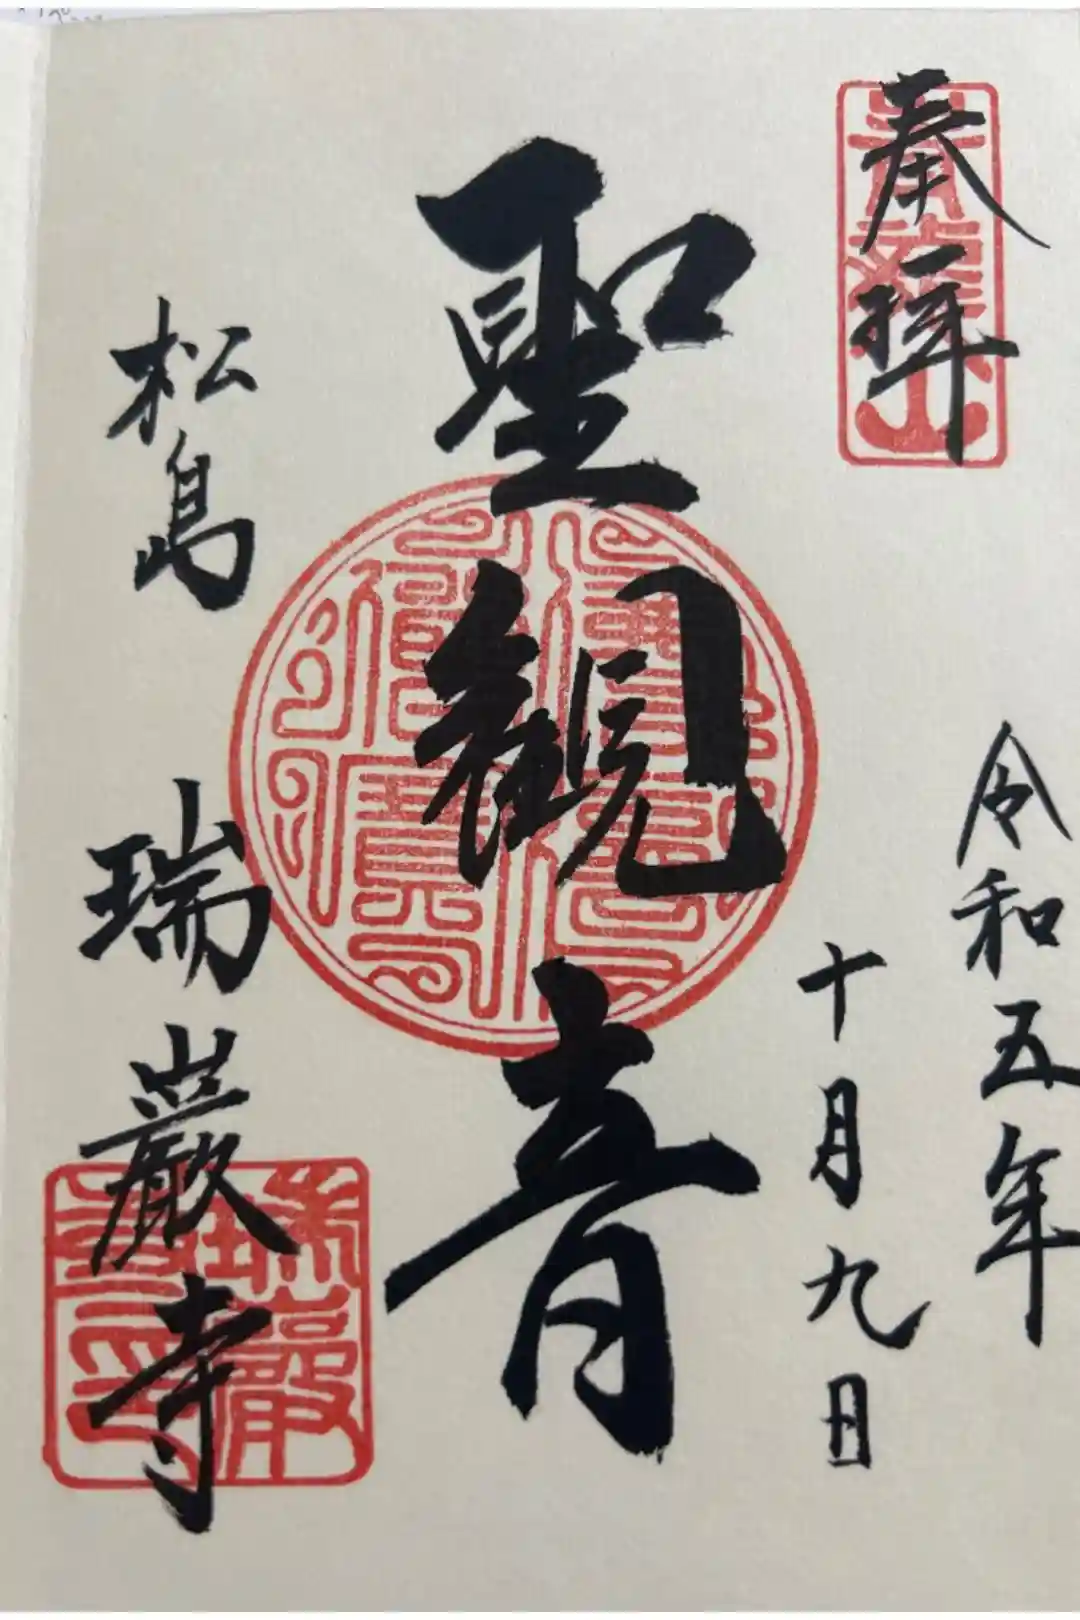 奉拝
令和五年
十月九日
聖観音
松島 瑞巌寺